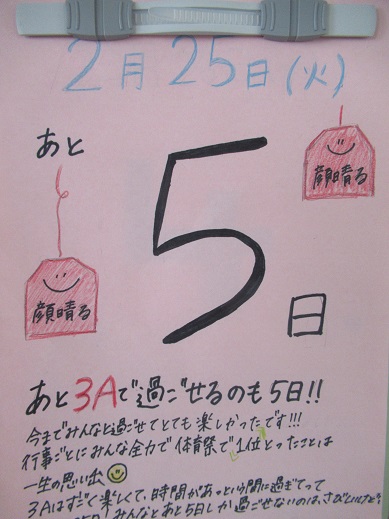 2月25日(火)
あと
顔晴る
5
顔晴る
日
あと3Aで過ごせるのも5日!!
今までみんなと過ごせてとても楽しかったです!!!
行事ごとにみんな全力で体育祭で1位とったことは
一生の思い出
3Aはすごく楽しくて、時間があっという間に過ぎてって
みんなとあと5日しか過ごせないのは、さびしいけど